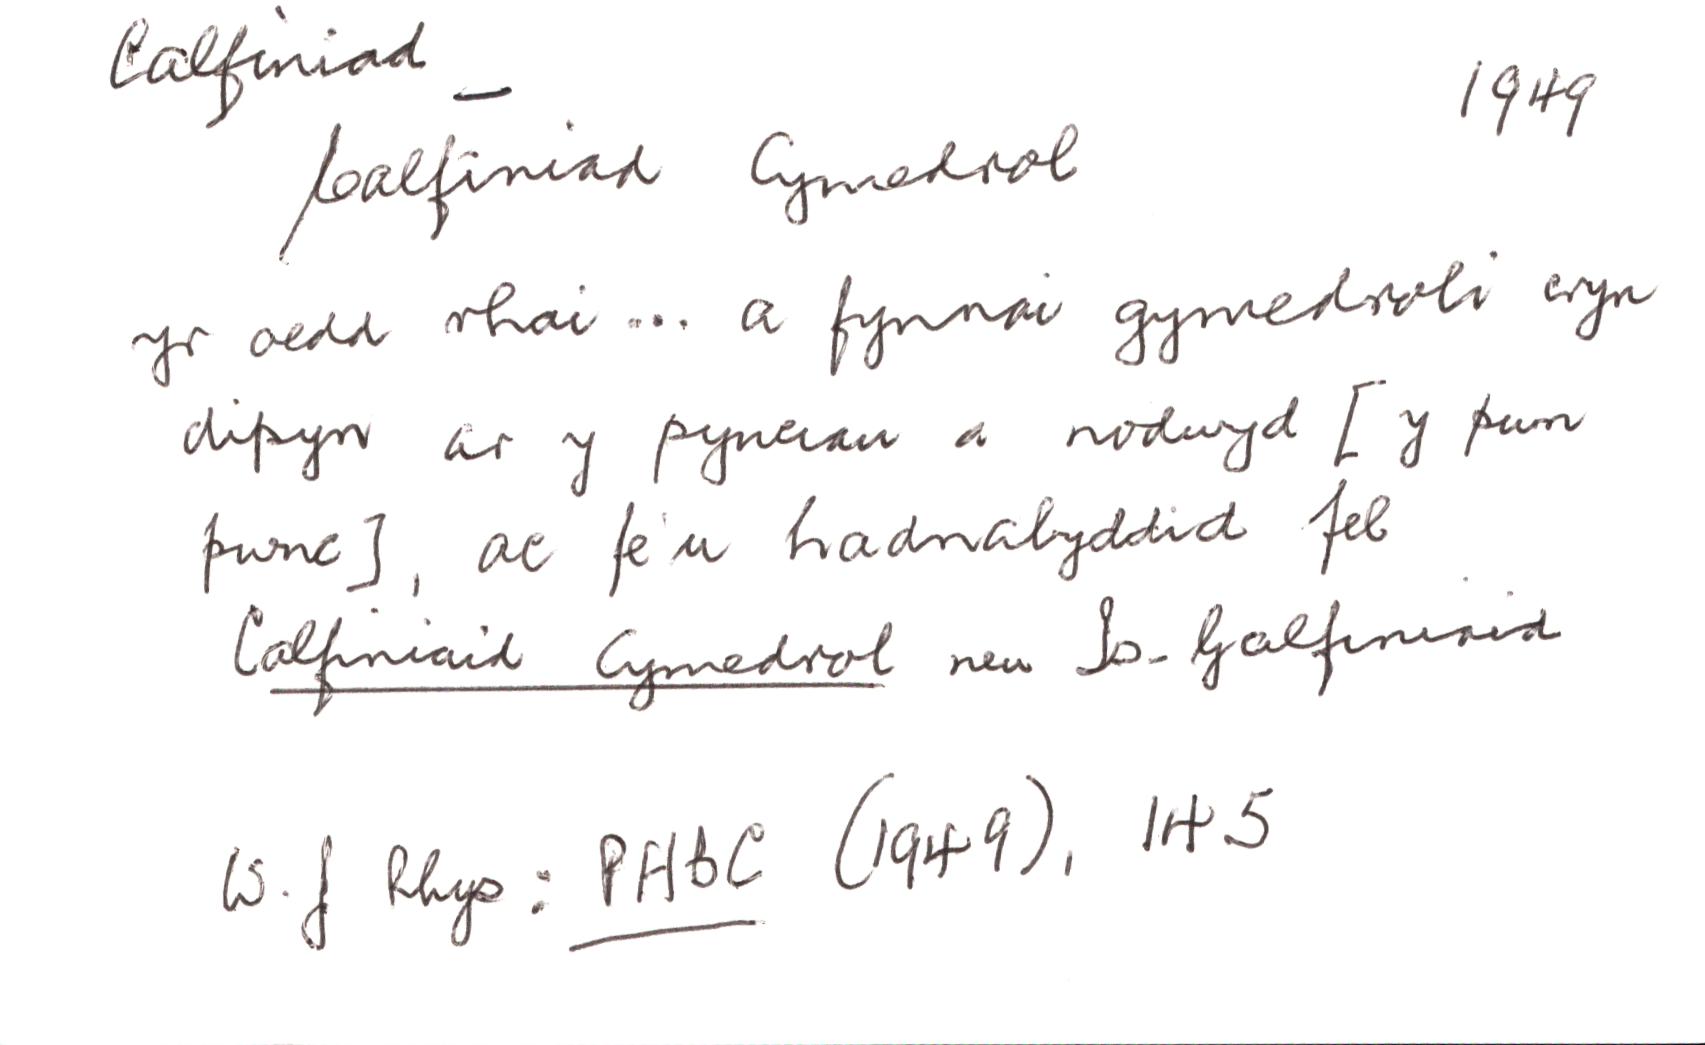 Calfiniad –
1949
Calfiniad Cymedrol
yr oedd rhai ... a fynnai gymedroli cryn
dipyn ar y pynciau a nodwyd [y pum
pwnc], ac fe'u hadnabyddid fel
Calfiniaid Cymedrol neu Is-Galfiniaid
W. J Rhys: PHBC (1949), 145